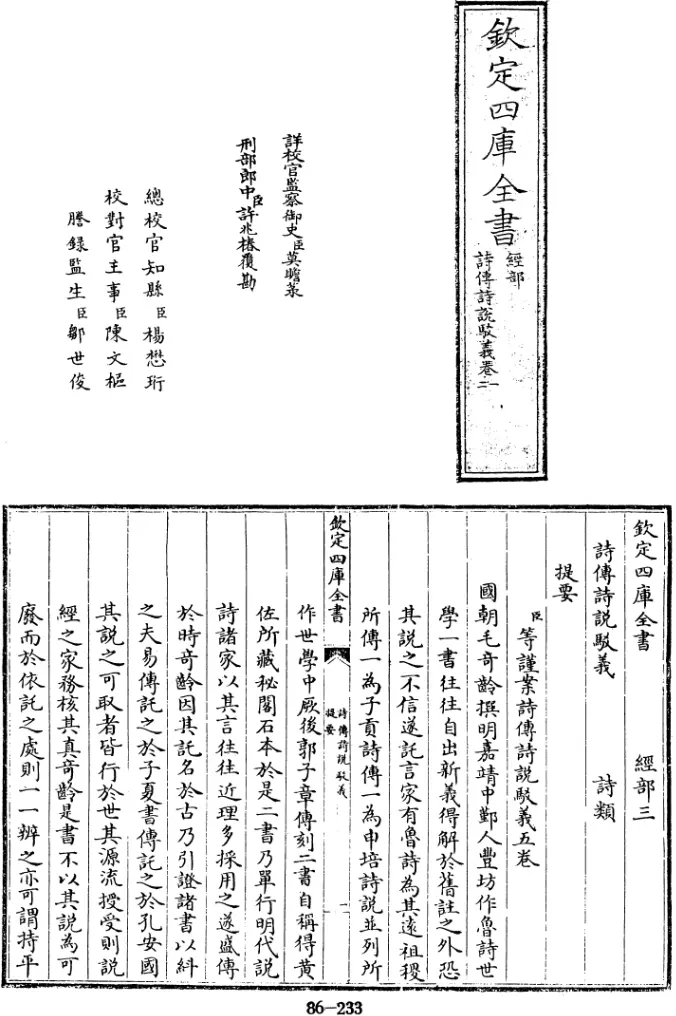 欽定四庫全書
經部
詩傳詩說駁義卷一
詳校官監察御史臣莫瞻菉
刑部郎中臣許兆椿覆勘
總校官知縣臣楊懋珩
校對官主事臣陳文樞
謄錄監生臣鄒世俊
欽定四庫全書 經部三
詩傳詩說駁義 詩類
提要
臣等謹案詩傳詩說駁義五卷
國朝毛奇齡撰明嘉靖中鄞人豐坊作魯詩世
學一書往往自出新義得解於舊註之外恐
其說之不信遂託言家有魯詩為其遠祖稷
所傳一為子貢詩傳一為申培詩說並列所
欽定四庫全書
詩傳詩說駁義
提要
一
作世學中厥後郭子章傳刻二書自稱得黃
佐所藏秘閣石本於是二書乃單行明代說
詩諸家以其言往往近理多採用之遂盛傳
於時奇齡因其託名於古乃引證諸書以糾
之夫易傳託之於子夏書傳託之於孔安國
其說之可取者皆行於世其源流授受則說
經之家務核其真奇齡是書不以其說為可
廢而於依託之處則一一辨之亦可謂持平
86-233